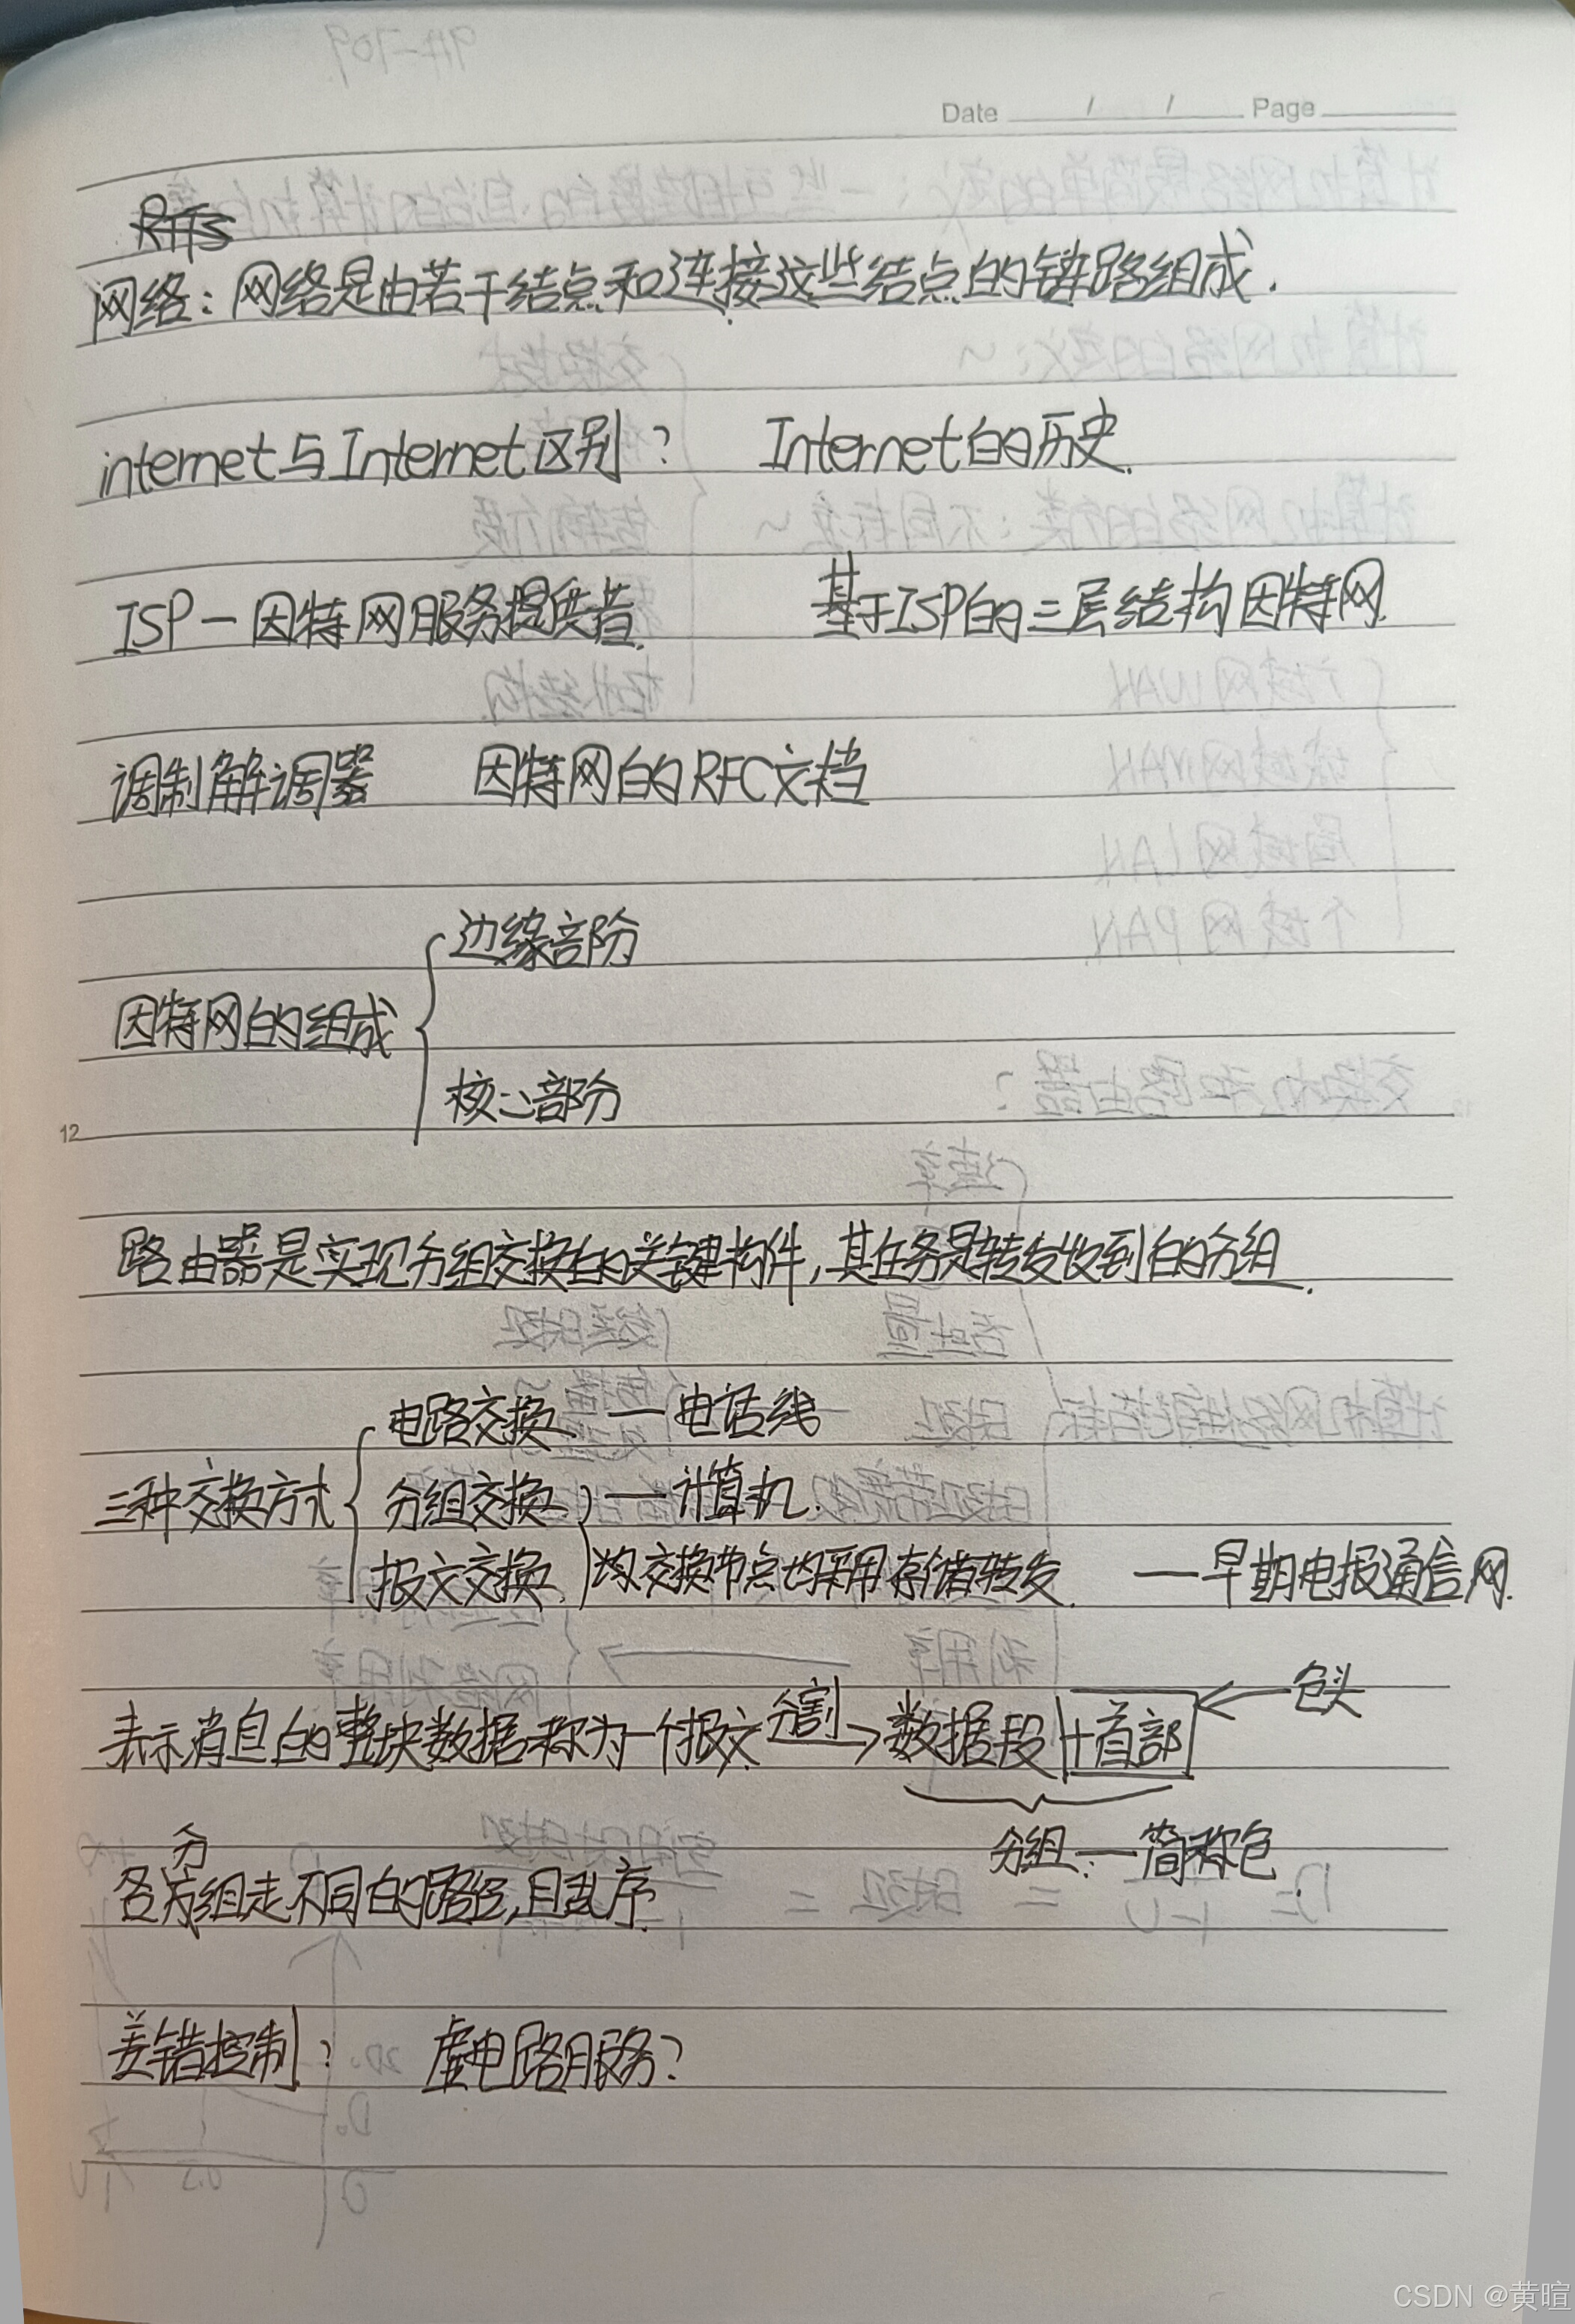 Date / / Page
网络：网络是由若干结点和连接这些结点的链路组成.
internet与Internet区别？ Internet的历史.
ISP—因特网服务提供者. 基于ISP的三层结构因特网.
调制解调器 因特网的RFC文档
边缘部分
因特网的组成
核心部分
12
路由器是实现分组交换的关键构件,其任务是转发收到的分组.
电路交换 — 电话线
三种交换方式 分组交换 — 计算机.
报文交换 交换节点均采用存储转发. — 早期电报通信网.
包头
表示消息的整块数据称为一个报文 分割→ 数据段+首部
分组：—简称包.
各分组走不同的路径,且乱序.
差错控制？ 虚电路服务？
CSDN @黄暄